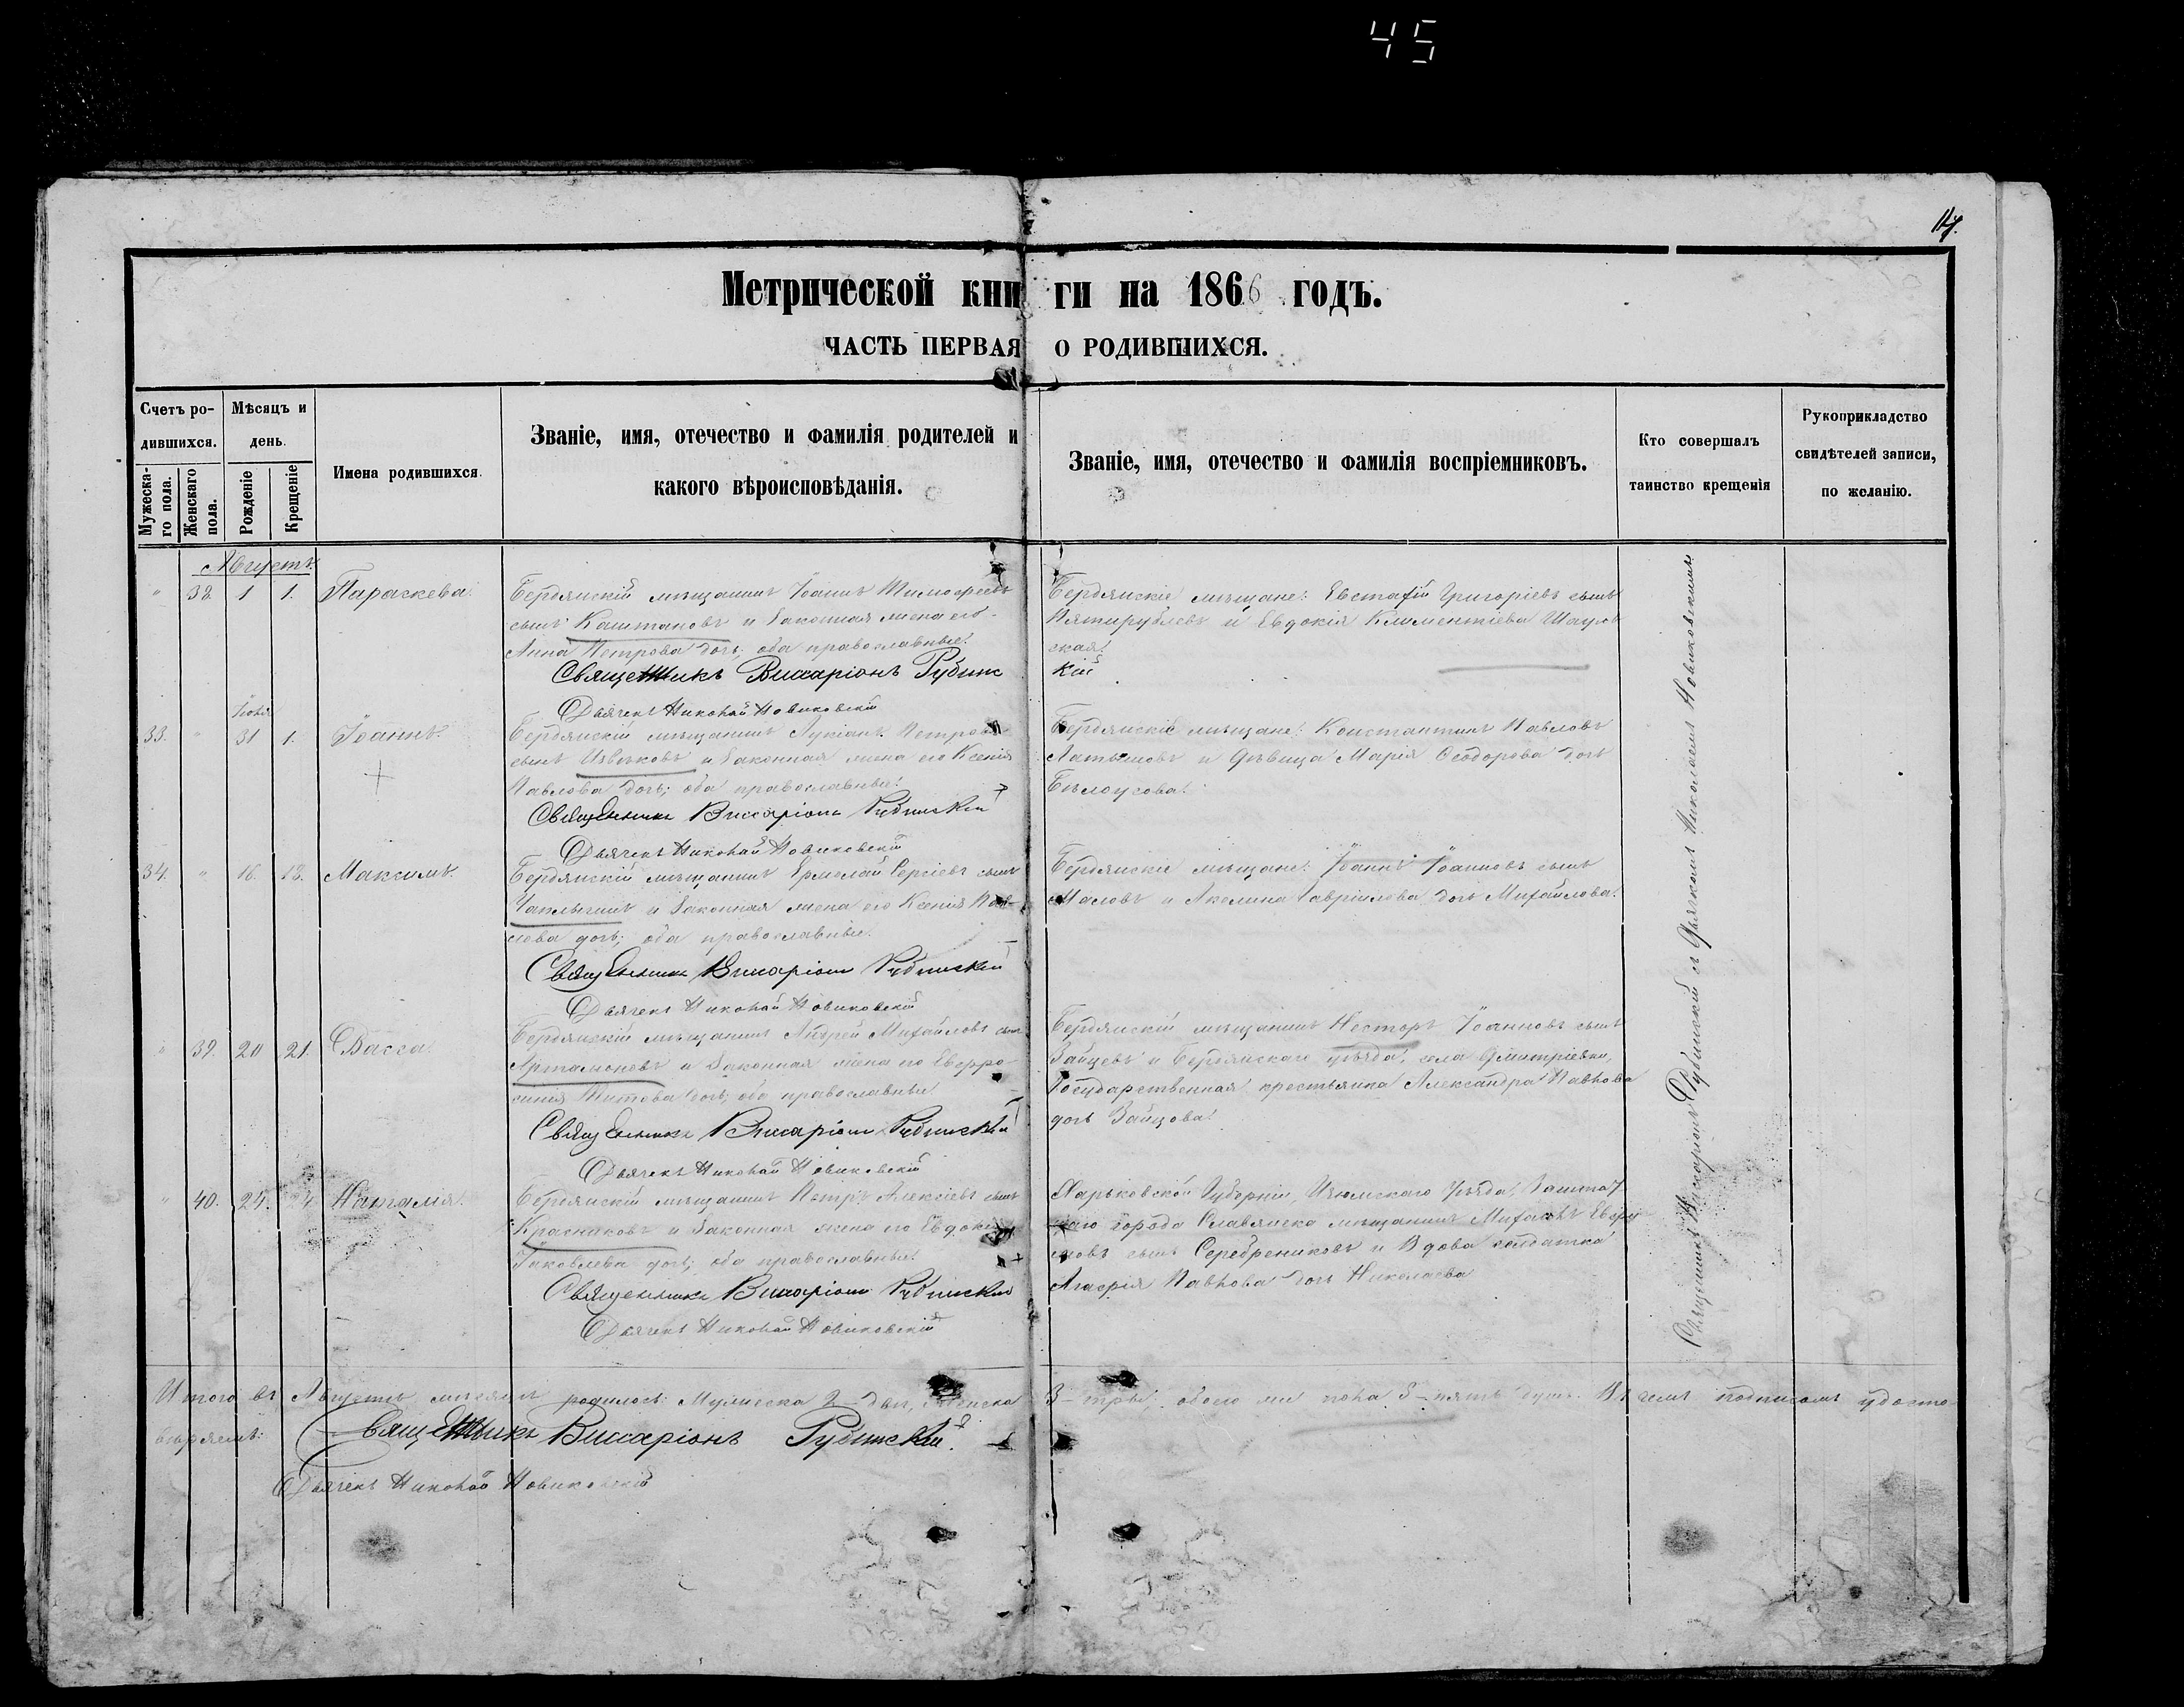 45
Метрической книги на 1866 годъ.
ЧАСТЬ ПЕРВАЯ О РОДИВШИХСЯ.
Счетъ родившихся.
Мужескаго пола.
Женскаго пола.
Мѣсяцъ и день.
Рожденіе
Крещеніе
Имена родившихся.
Званіе, имя, отечество и фамилія родителей и
какого вѣроисповѣданія.
Званіе, имя, отечество и фамилія воспріемниковъ.
Кто совершалъ
таинство крещенія
Рукоприкладство
свидѣтелей записи,
по желанію.
Августъ.
" 38. 1 1. Параскева.
Бердянскій мѣщанинъ Іоаннъ Тимофеевъ
сынъ Каштановъ и законная жена его
Анна Петрова дочь; оба православные.
Бердянскіе мѣщане: Евстафій Григоріевъ сынъ
Пятирублевъ и Евдокія Климентіева
ская.
Священникъ Виссаріонъ Рубинскій
Дьячекъ Николай Новиковскій
33. " 31 1. Іоаннъ.
Бердянскій мѣщанинъ Лукіанъ Петровъ
сынъ Извѣковъ и законная жена его Ксенія
Павлова дочь; оба православные.
Бердянскіе мѣщане: Константинъ Павловъ
Латышовъ и дѣвица Марія Ѳеодорова дочь
Бѣлоусова.
Священникъ Виссаріонъ Рубинскій
Дьячекъ Николай Новиковскій
34. " 16. 18. Максимъ.
Бердянскій мѣщанинъ Ермолай Сергіевъ сынъ
Чаплыгинъ и законная жена его Ксенія Пав-
лова дочь; оба православные.
Бердянскіе мѣщане: Іоаннъ Іоанновъ сынъ
Маловъ и Акелина Гавріилова дочь Михайлова.
Священникъ Виссаріонъ Рубинскій
Дьячекъ Николай Новиковскій
" 39. 20 21. Васса.
Бердянскій мѣщанинъ Андрей Михайловъ сынъ
Артамоновъ и законная жена его Евфро-
синія Титова дочь; оба православные
Бердянскій мѣщанинъ Несторъ Іоанновъ сынъ
Зайцевъ и Бердянскаго уѣзда, села Дмитріевки,
Государственная крестьянка Александра Павлова
дочь Зайцова.
Священникъ Виссаріонъ Рубинскій
Дьячекъ Николай Новиковскій
" 40. 24. 24 Наталія.
Бердянскій мѣщанинъ Петръ Алексіевъ сынъ
Красниковъ и законная жена его Евдокія
Іаковлева дочь; оба православные.
Харьковской Губерніи, Изюмскаго Уѣзда, Заштат-
наго города Славянска мѣщанинъ Михаилъ
сынъ Серебрениковъ и Вдова солдатка
Агафія Павлова дочь Николаева
Священникъ Виссаріонъ Рубинскій
Дьячекъ Николай Новиковскій
Священникъ Виссаріонъ Рубинскій съ Дьячкомъ Николаемъ Новиковскимъ
Итого въ Августѣ мѣсяцѣ родилось: Мужеска 2 – два, Женска 3 – три, обоего же пола 5 – пять душъ. Въ чемъ подписомъ удосто-
вѣряемъ:
Священникъ Виссаріонъ Рубинскій.
Дьячекъ Николай Новиковскій